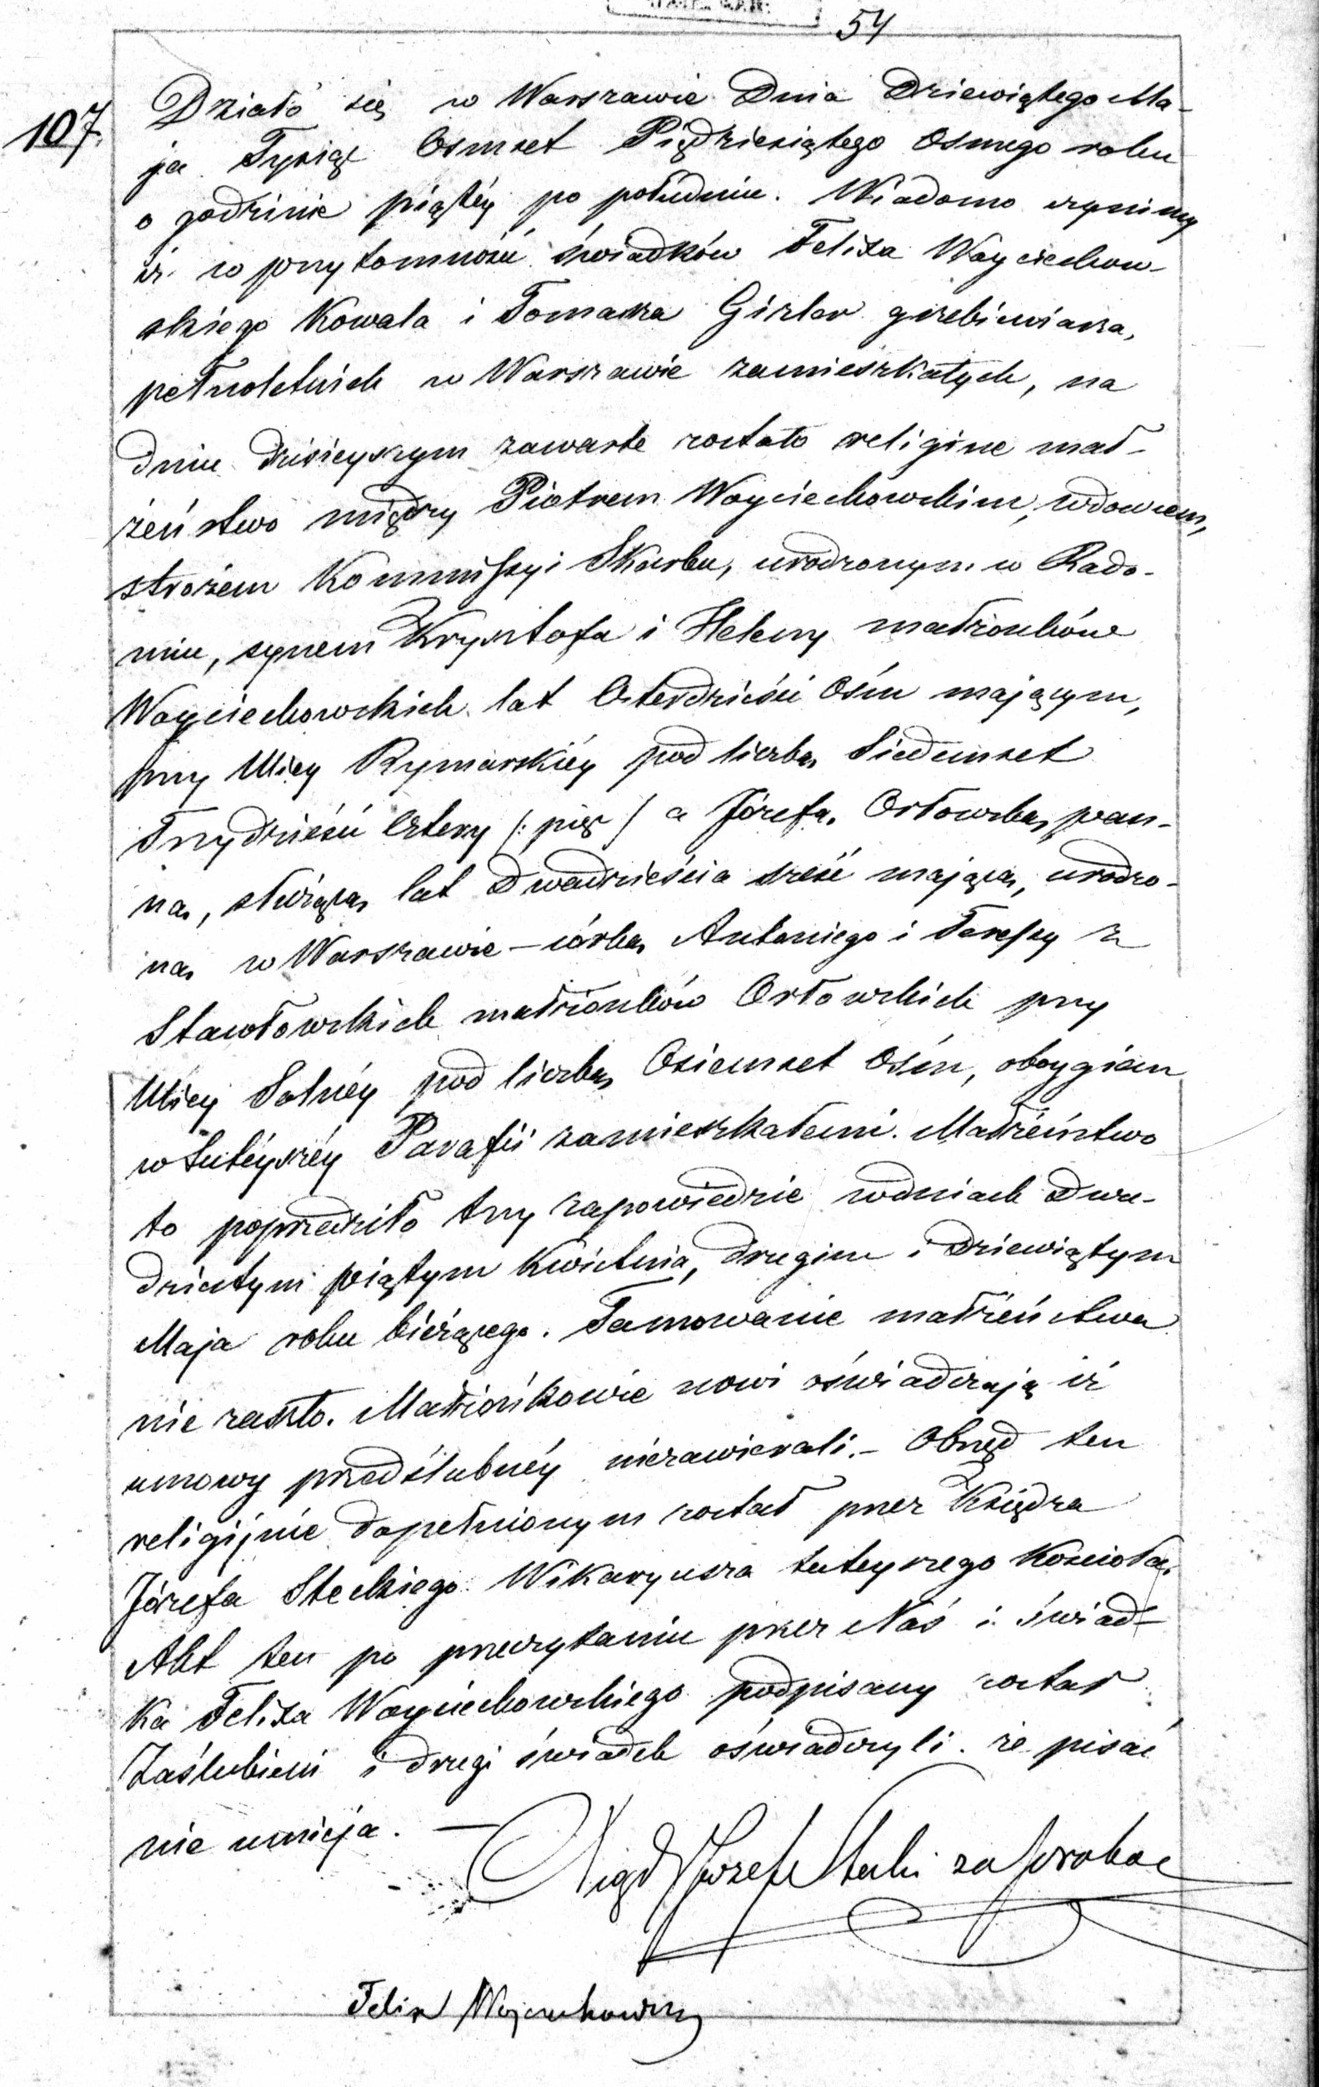 54
107.
Działo się w Warszawie Dnia Dziewiątego Ma-
ja Tysiąc Osmset Pięćdziesiątego Osmego roku
o godzinie piątéy po południu. Wiadomo czynimy
iż w przytomności świadków Felixa Woyciechow-
skiego Kowala i Tomasza Gizler grzebieniarza,
pełnoletnich w Warszawie zamieszkałych, na
dniu dzisieyszym zawarte zostało religijne mał-
żeństwo między Piotrem Woyciechowskim, wdowcem,
stróżem Kommissyi Skarbu, urodzonym w Rado-
miu, synem Krysztofa i Heleny małżonków
Woyciechowskich lat Czterdzieści Ośm mającym,
przy Ulicy Rymarskiéy pod liczbą Siedmset
Trzydzieści Cztery /: pięć / a Józefą Orłowską, pan-
ną, służącą, lat Dwadzieścia sześć mającą, urodzo-
ną w Warszawie – córką Antoniego i Teressy z
Stawłowskich małżonków Orłowskich przy
Ulicy Solnéy pod liczbą Osiemset Ośm, oboygiem
w tutéyszéy Parafii zamieszkałemi. Małżeństwo
to poprzedziło trzy zapowiedzie w dniach Dwu-
dziestym piątym Kwietnia, drugim i dziewiątym
Maja roku bieżącego. Tamowanie małżeństwa
nie zaszło. Małżonkowie nowi oświadczają iż
umowy przedślubnéy niezawierali. – Obrzęd ten
religijnie dopełnionym został przez Księdza
Józefa Steckiego Wikaryusza tuteyszego Kościoła.
Akt ten po przeczytaniu przez Nas i świad-
ka Felixa Woyciechowskiego podpisany został
Zaślubieni i drugi świadek oświadczyli że pisać
nie umieją. —
Xiądz Józef Stecki za proboszcz
Felix Wojciechowski